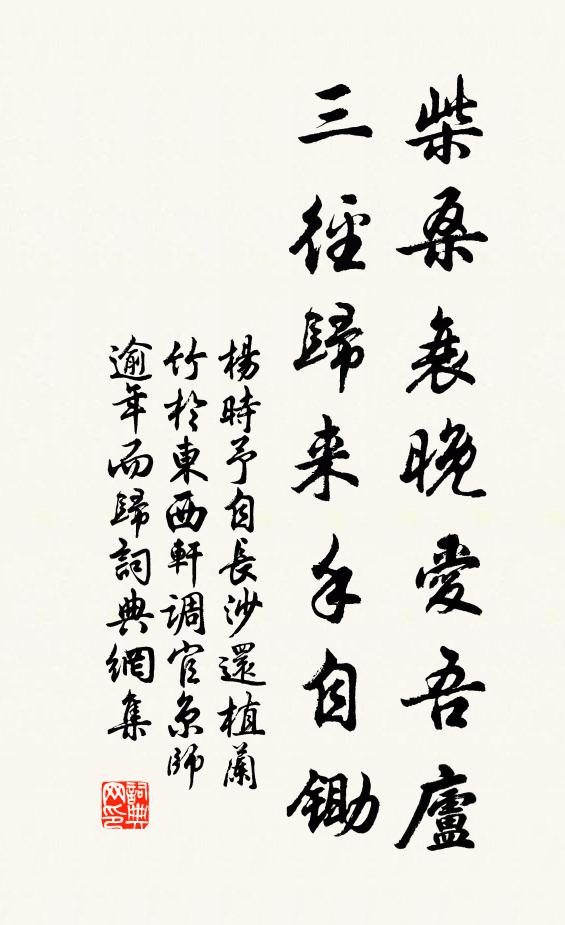 柴桑衰晚愛吾廬
三徑歸来手自鋤
楊時予自長沙還植蘭
竹於東西軒調官京師
逾年而歸詞典網集
詞典网印